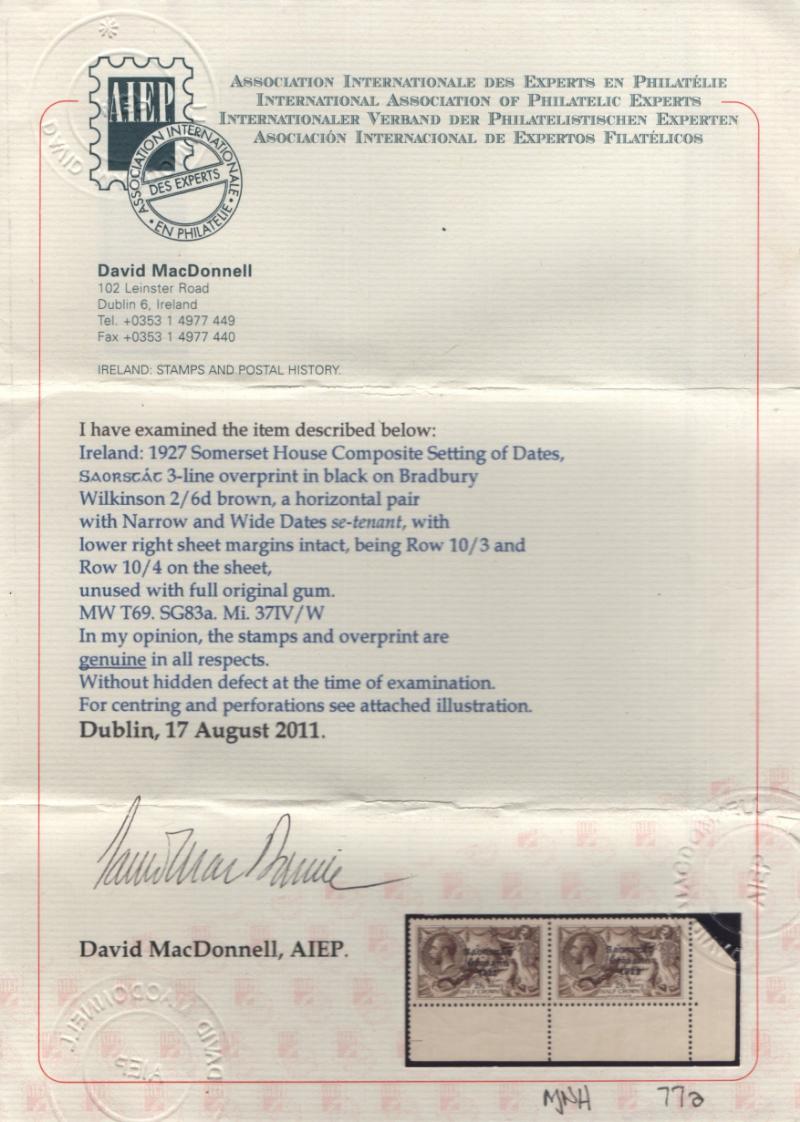 AIEP
ASSOCIATION INTERNATIONALE DES EXPERTS EN PHILATÉLIE
INTERNATIONAL ASSOCIATION OF PHILATELIC EXPERTS
INTERNATIONALER VERBAND DER PHILATELISTISCHEN EXPERTEN
ASOCIACIÓN INTERNACIONAL DE EXPERTOS FILATÉLICOS
ASSOCIATION INTERNATIONALE
DES EXPERTS
• EN PHILATELIE •
David MacDonnell
102 Leinster Road
Dublin 6, Ireland
Tel. +0353 1 4977 449
Fax +0353 1 4977 440
IRELAND: STAMPS AND POSTAL HISTORY.
I have examined the item described below:
Ireland: 1927 Somerset House Composite Setting of Dates,
SAORSTÁT 3-line overprint in black on Bradbury
Wilkinson 2/6d brown, a horizontal pair
with Narrow and Wide Dates se-tenant, with
lower right sheet margins intact, being Row 10/3 and
Row 10/4 on the sheet,
unused with full original gum.
MW T69. SG83a. Mi. 37IV/W
In my opinion, the stamps and overprint are
genuine in all respects.
Without hidden defect at the time of examination.
For centring and perforations see attached illustration.
Dublin, 17 August 2011.
David MacDonnell, AIEP.
DAVID MACDONNELL
AIEP
MACDONNELL
AIEP
HALF CROWN
HALF CROWN
MNH 77a